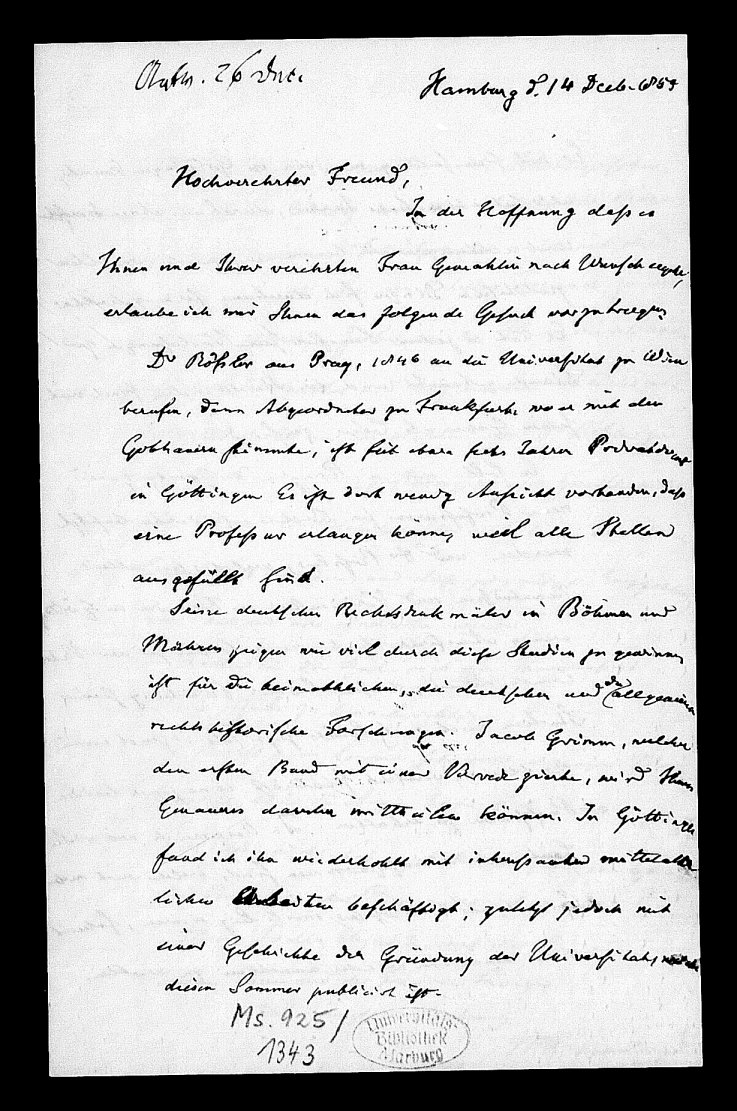 Antw. 26 Dec.
Hamburg d. 14 Decb. 185
Hochverehrter Freund,
In der Hoffnung daſs es
Ihnen und Ihrer verehrten Frau Gemahlin nach Wunsch ergehe,
erlaube ich mir Ihnen das folgende Gesuch vorzutragen
Dr Röſsler aus Prag, 1846 an die Universität zu Wien
berufen, dann Abgeordneter zu Frankfurt, wo er mit den
Gothaern stimmte, ist seit etwa sechs Jahren Privatdocent
in Göttingen Es ist dort wenig Aussicht vorhanden, daſs
er eine Professur erlangen könne, weil alle Stellen
ausgefüllt sind.
Seine deutschen Rechtsdenkmäler in Böhmen und
Mähren zeigen wie viel durch diese Studien zu gewinnen
ist für die heimathlichen, die deutschen und die allgemeinen
rechtshistorische Forschungen. Jacob Grimm, welcher
den ersten Band mit einer Vorrede zierte, wird Ihnen
Genaueres darüber mittheilen können. In Göttingen
fand ich ihn wiederhohlt mit interessanten mittelalter
lichen Arbeiten beschäftigt; zuletzt jedoch mit
einer Geschichte der Gründung der Universität, welche
diesen Sommer publicirt ist.
Ms. 925/
1343
Universitäts-
Bibliothek
Marburg